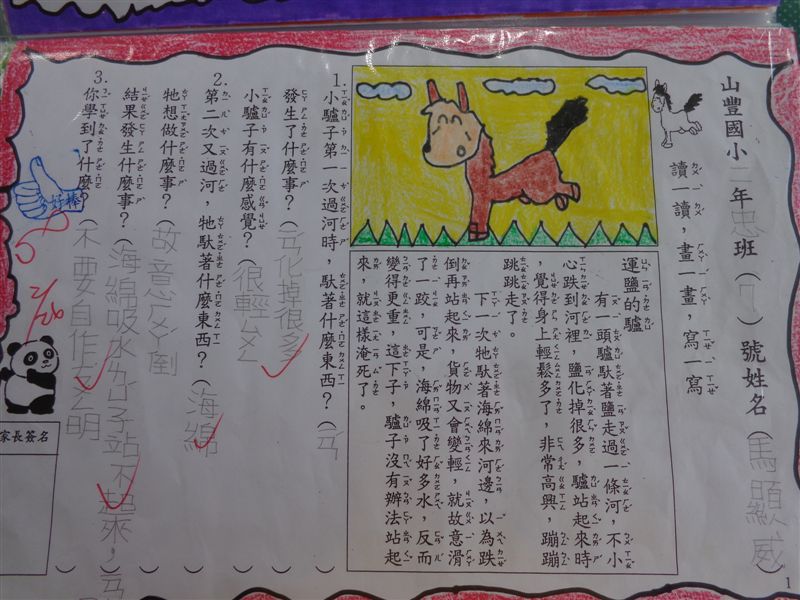 山豐國小二年忠班（）號姓名（馬顥威
讀一讀，畫一畫，寫一寫
運鹽的驢
有一頭驢馱著鹽走過一條河，不小
心跌到河裡，鹽化掉很多，驢站起來時
，覺得身上輕鬆多了，非常高興，蹦蹦
跳跳走了。
下一次牠馱著海綿來河邊，以為跌
倒再站起來，貨物又會變輕，就故意滑
了一跤，可是，海綿吸了好多水，反而
變得更重，這下子，驢子沒有辦法站起
來，就這樣淹死了。
1.小驢子第一次過河時，馱著什麼東西？（ㄢ
發生了什麼事？（ㄢ化掉很多
小驢子有什麼感覺？（很輕ㄙㄨㄥ
2.第二次又過河，牠馱著什麼東西？（海綿
牠想做什麼事？（故意ㄉㄧㄝ倒
結果發生什麼事？（海綿吸水ㄌㄩ子站不起來，ㄢ
3.你學到了什麼？（不要自作ㄘㄨㄥ明
好棒
家長簽名
1